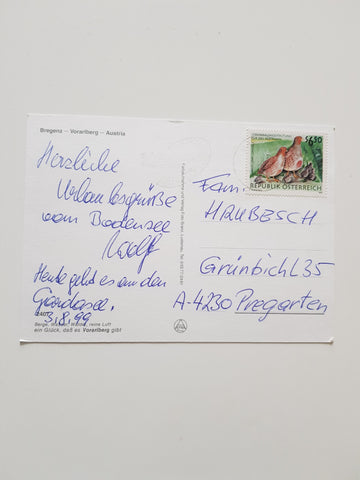 Bregenz – Vorarlberg – Austria
Herzliche
Urlaubsgrüße
vom Bodensee
Rudolf
Heute geht es an den
Gardasee.
3.8.99
Berge, Wasser, Wälder, reine Luft
ein Glück, daß es Vorarlberg gibt
S 6,50
REPUBLIK ÖSTERREICH
Fam.
HRUBESCH
Grünbichl 35
A-4230 Pregarten